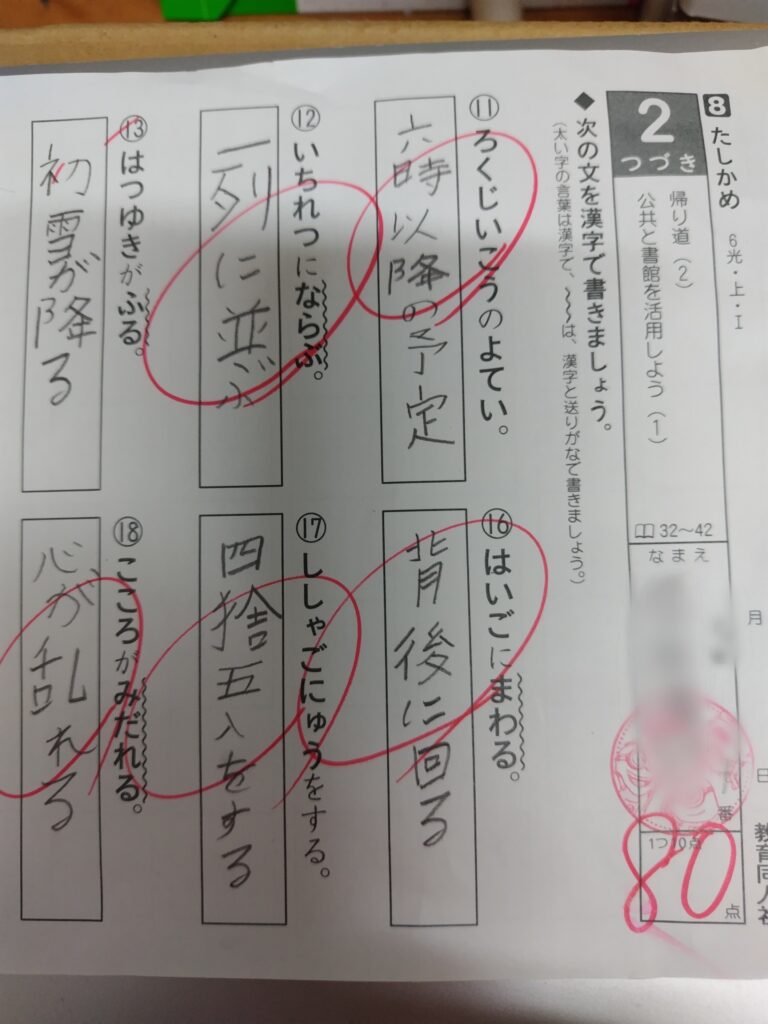 8 たしかめ
6光・上・I
2
つづき
帰り道(2)
公共図書館を活用しよう(1)
32~42
なまえ
月
日
番
教育同人社
1つ10点
80
点
◆ 次の文を漢字で書きましょう。
(太い字の言葉は漢字で、〜〜は、漢字と送りがなで書きましょう。)
⑪ ろくじいこうのよてい。
六時以降の予定
⑫ いちれつにならぶ。
一列に並ぶ
⑬ はつゆきがふる。
初雪が降る
⑯ はいごにまわる。
背後に回る
⑰ ししゃごにゅうをする。
四捨五入をする
⑱ こころがみだれる。
心が乱れる